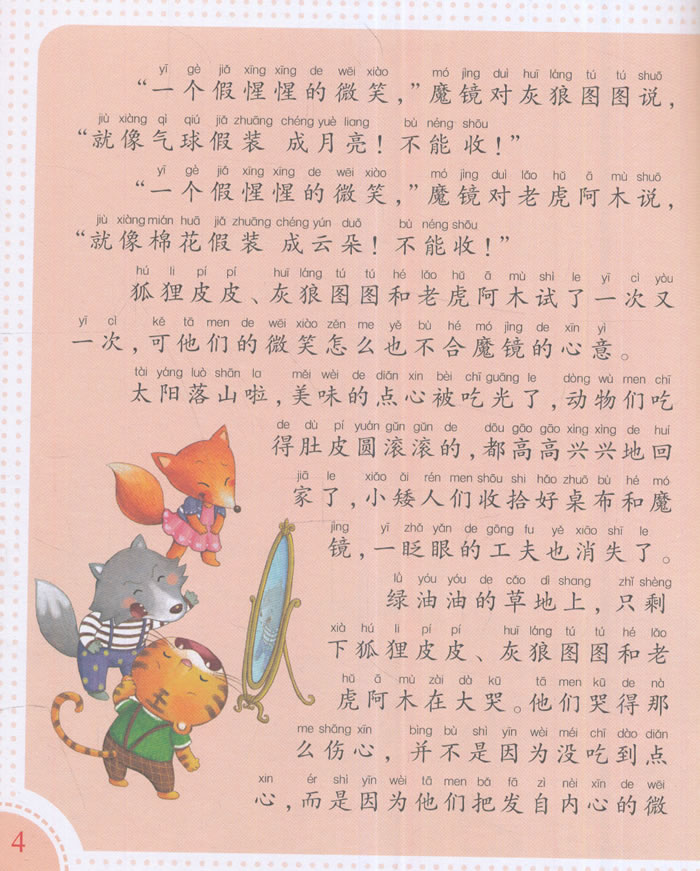 yī gè jiǎ xīng xīng de wēi xiào mó jìng duì huī láng tú tú shuō
“一个假惺惺的微笑，”魔镜对灰狼图图说，
jiù xiàng qì qiú jiǎ zhuāng chéng yuè liang bù néng shōu
“就像气球假装 成月亮！不能收！”
yī gè jiǎ xīng xīng de wēi xiào mó jìng duì lǎo hǔ ā mù shuō
“一个假惺惺的微笑，”魔镜对老虎阿木说，
jiù xiàng mián huā jiǎ zhuāng chéng yún duǒ bù néng shōu
“就像棉花假装 成云朵！不能收！”
hú li pí pí huī láng tú tú hé lǎo hǔ ā mù shì le yī cì yòu
狐狸皮皮、灰狼图图和老虎阿木试了一次又
yī cì kě tā men de wēi xiào zěn me yě bù hé mó jìng de xīn yì
一次，可他们的微笑怎么也不合魔镜的心意。
tài yáng luò shān la měi wèi de diǎn xin bèi chī guāng le dòng wù men chī
太阳落山啦，美味的点心被吃光了，动物们吃
de dù pí yuán gǔn gǔn de dōu gāo gāo xìng xìng de huí
得肚皮圆滚滚的，都高高兴兴地回
jiā le xiǎo ǎi rén men shōu shi hǎo zhuō bù hé mó
家了，小矮人们收拾好桌布和魔
jìng yī zhǎ yǎn de gōng fu yě xiāo shī le
镜，一眨眼的工夫也消失了。
lǜ yóu yóu de cǎo dì shang zhǐ shèng
绿油油的草地上，只剩
xià hú li pí pí huī láng tú tú hé lǎo
下狐狸皮皮、灰狼图图和老
hǔ ā mù zài dà kū tā men kū de nà
虎阿木在大哭。他们哭得那
me shāng xīn bìng bù shì yīn wèi méi chī dào diǎn
么伤心，并不是因为没吃到点
xin ér shì yīn wèi tā men bǎ fā zì nèi xīn de wēi
心，而是因为他们把发自内心的微
4